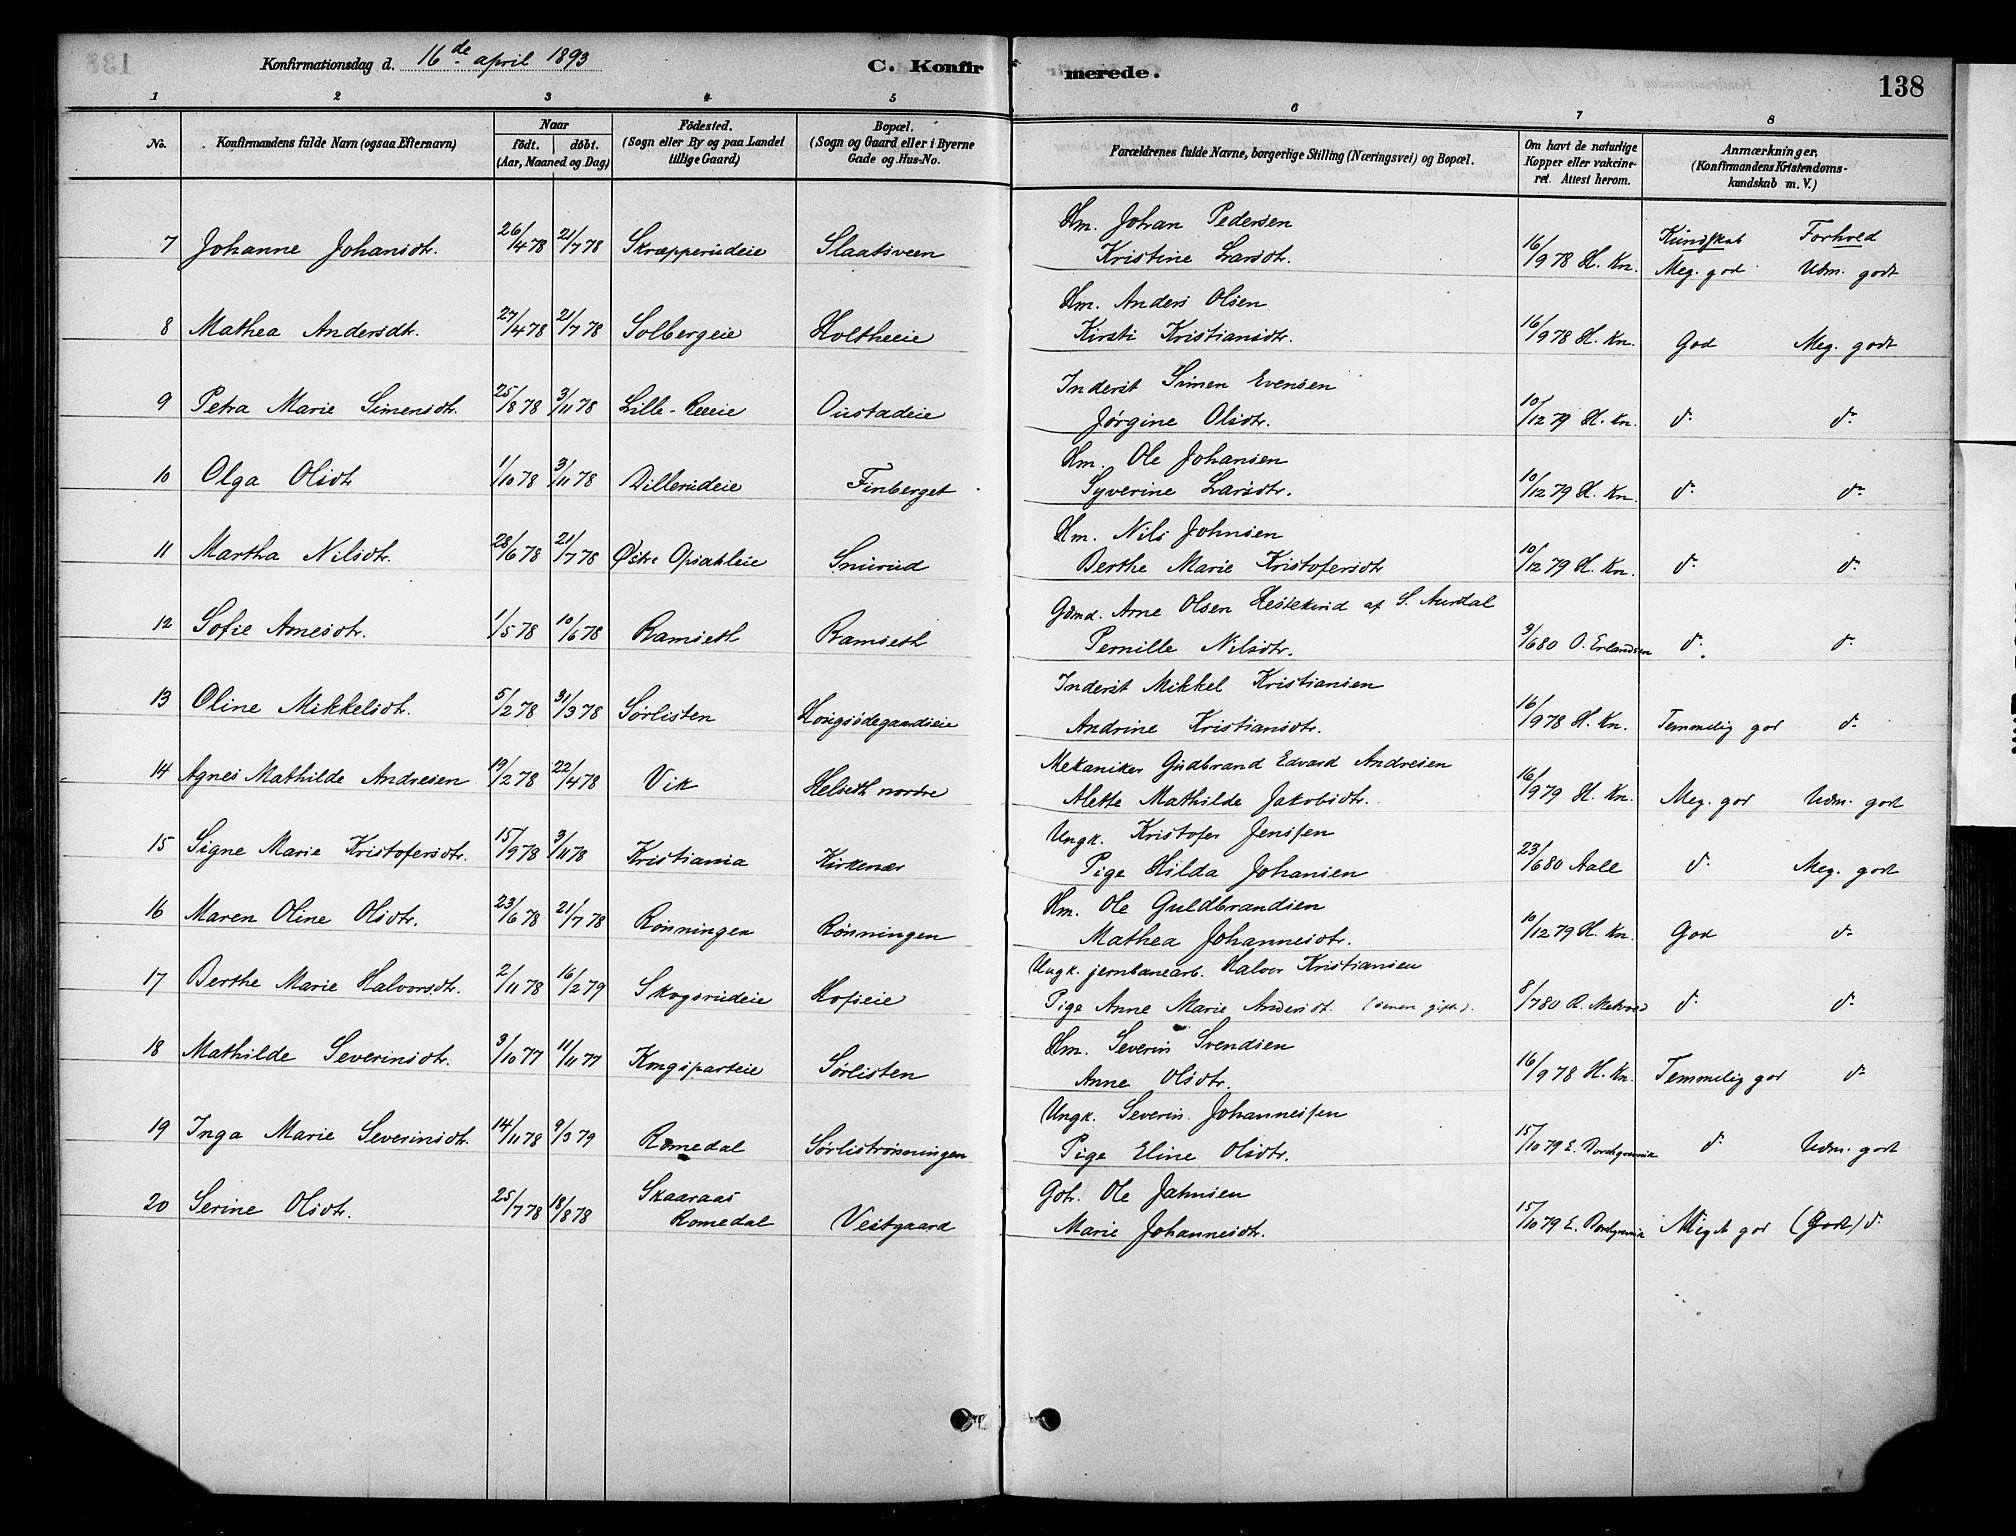 Konfirmationsdag d. 16de april 1893
C. Konfirmerede.
138
1 2 3 4 5 6 7 8
No. Konfirmandens fulde Navn (ogsaa Efternavn) Naar födt. döbt. (Aar, Maaned og Dag) Födested. (Sogn eller By og paa Landet tillige Gaard) Bopæl. (Sogn og Gaard eller i Byerne Gade og Hus-No. Forældrenes fulde Navne, borgerlige Stilling (Næringsvei) og Bopæl. Om havt de naturlige Kopper eller vakcineret. Attest herom. Anmærkninger. (Konfirmandens Kristendomskundskab m. V.)
Hm. Johan Pedersen Kundskab Forhold
7 Johanne Johansdt. 26/4 78 21/7 78 Skræpperudeie Slaatsveen Kristine Larsdt. 16/9 78 H. Kn. Meg. god Udm. godt
Hm. Anders Olsen
8 Mathea Andersdt. 27/4 78 21/7 78 Solbergeie Holtheeie Kirsti Kristiansdtr. 16/9 78 H. Kn. God Meg. godt
Inderst Simen Evensen
9 Petra Marie Simensdtr. 25/8 78 3/11 78 Lille-Reeie Oustadeie Jørgine Olsdtr. 10/12 79 H. Kn. d. d.
Hm. Ole Johansen
10 Olga Olsdtr 1/10 78 3/11 78 Dillerudeie Finberget Syverine Larsdtr. 10/12 79 H. Kn. d. d.
Hm. Nils Johnsen
11 Martha Nilsdtr. 28/6 78 21/7 78 Østre Opsahleie Snurud Berthe Marie Kristofersdtr 10/12 79 H. Kn. d. d.
Gdmd. Arne Olsen Hestekind af S. Aurdal
12 Sofie Arnesdtr. 1/5 78 10/6 78 Ramseth Ramseth Pernille Nilsdtr. 3/6 80 O. Erlandsen d. d.
Inderst Mikkel Kristiansen
13 Oline Mikkelsdt. 5/2 78 31/3 78 Sørlisten Andrine Kristiansdtr. 16/9 78 H. Kn. Temmelig god d.
Mekaniker Gudbrand Edvard Andresen
14 Agnes Mathilde Andresen 19/2 78 22/4 78 Vik Helseth nordre Alette Mathilde Jakobsdtr. 16/9 79 H. Kn. Meg. god Udm. godt
Ungk. Kristofer Jenssen
15 Signe Marie Kristofersdtr. 15/9 78 3/11 78 Kristiania Kirkenær Pige Hilda Johansen 23/6 80 Aall d. Meg. godt
Hm. Ole Guldbrandsen
16 Maren Oline Olsdtr. 23/6 78 21/7 78 Rønningen Rønningen Mathea Johannesdtr. 10/12 79 H. Kn. God d.
Ungk. jernbanearb. Halvor Kristiansen
17 Berthe Marie Halvorsdtr. 2/11 78 16/2 79 Skogsrudeie Hofseie Pige Anne Marie Andersdt. (senere gift). 8/7 80 d. d.
Hm. Severin Svendsen
18 Mathilde Severinsdtr. 3/10 77 11/11 77 Kongsparteie Sørlisten Anne Olsdtr. 16/9 78 H. Kn. Temmelig god d.
Ungk. Severin Johannessen
19 Inga Marie Severinsdt. 14/11 78 9/3 79 Romedal Sørlistrønningen Pige Eline Olsdtr. 15/10 79 E. d. Udm. godt
Skaaraas Gbr. Ole Jahnsen
20 Serine Olsdtr. 25/7 78 18/8 78 Romedal Vestgaard Marie Johannesdtr. 15/10 79 E. Meget god (Godt) d.